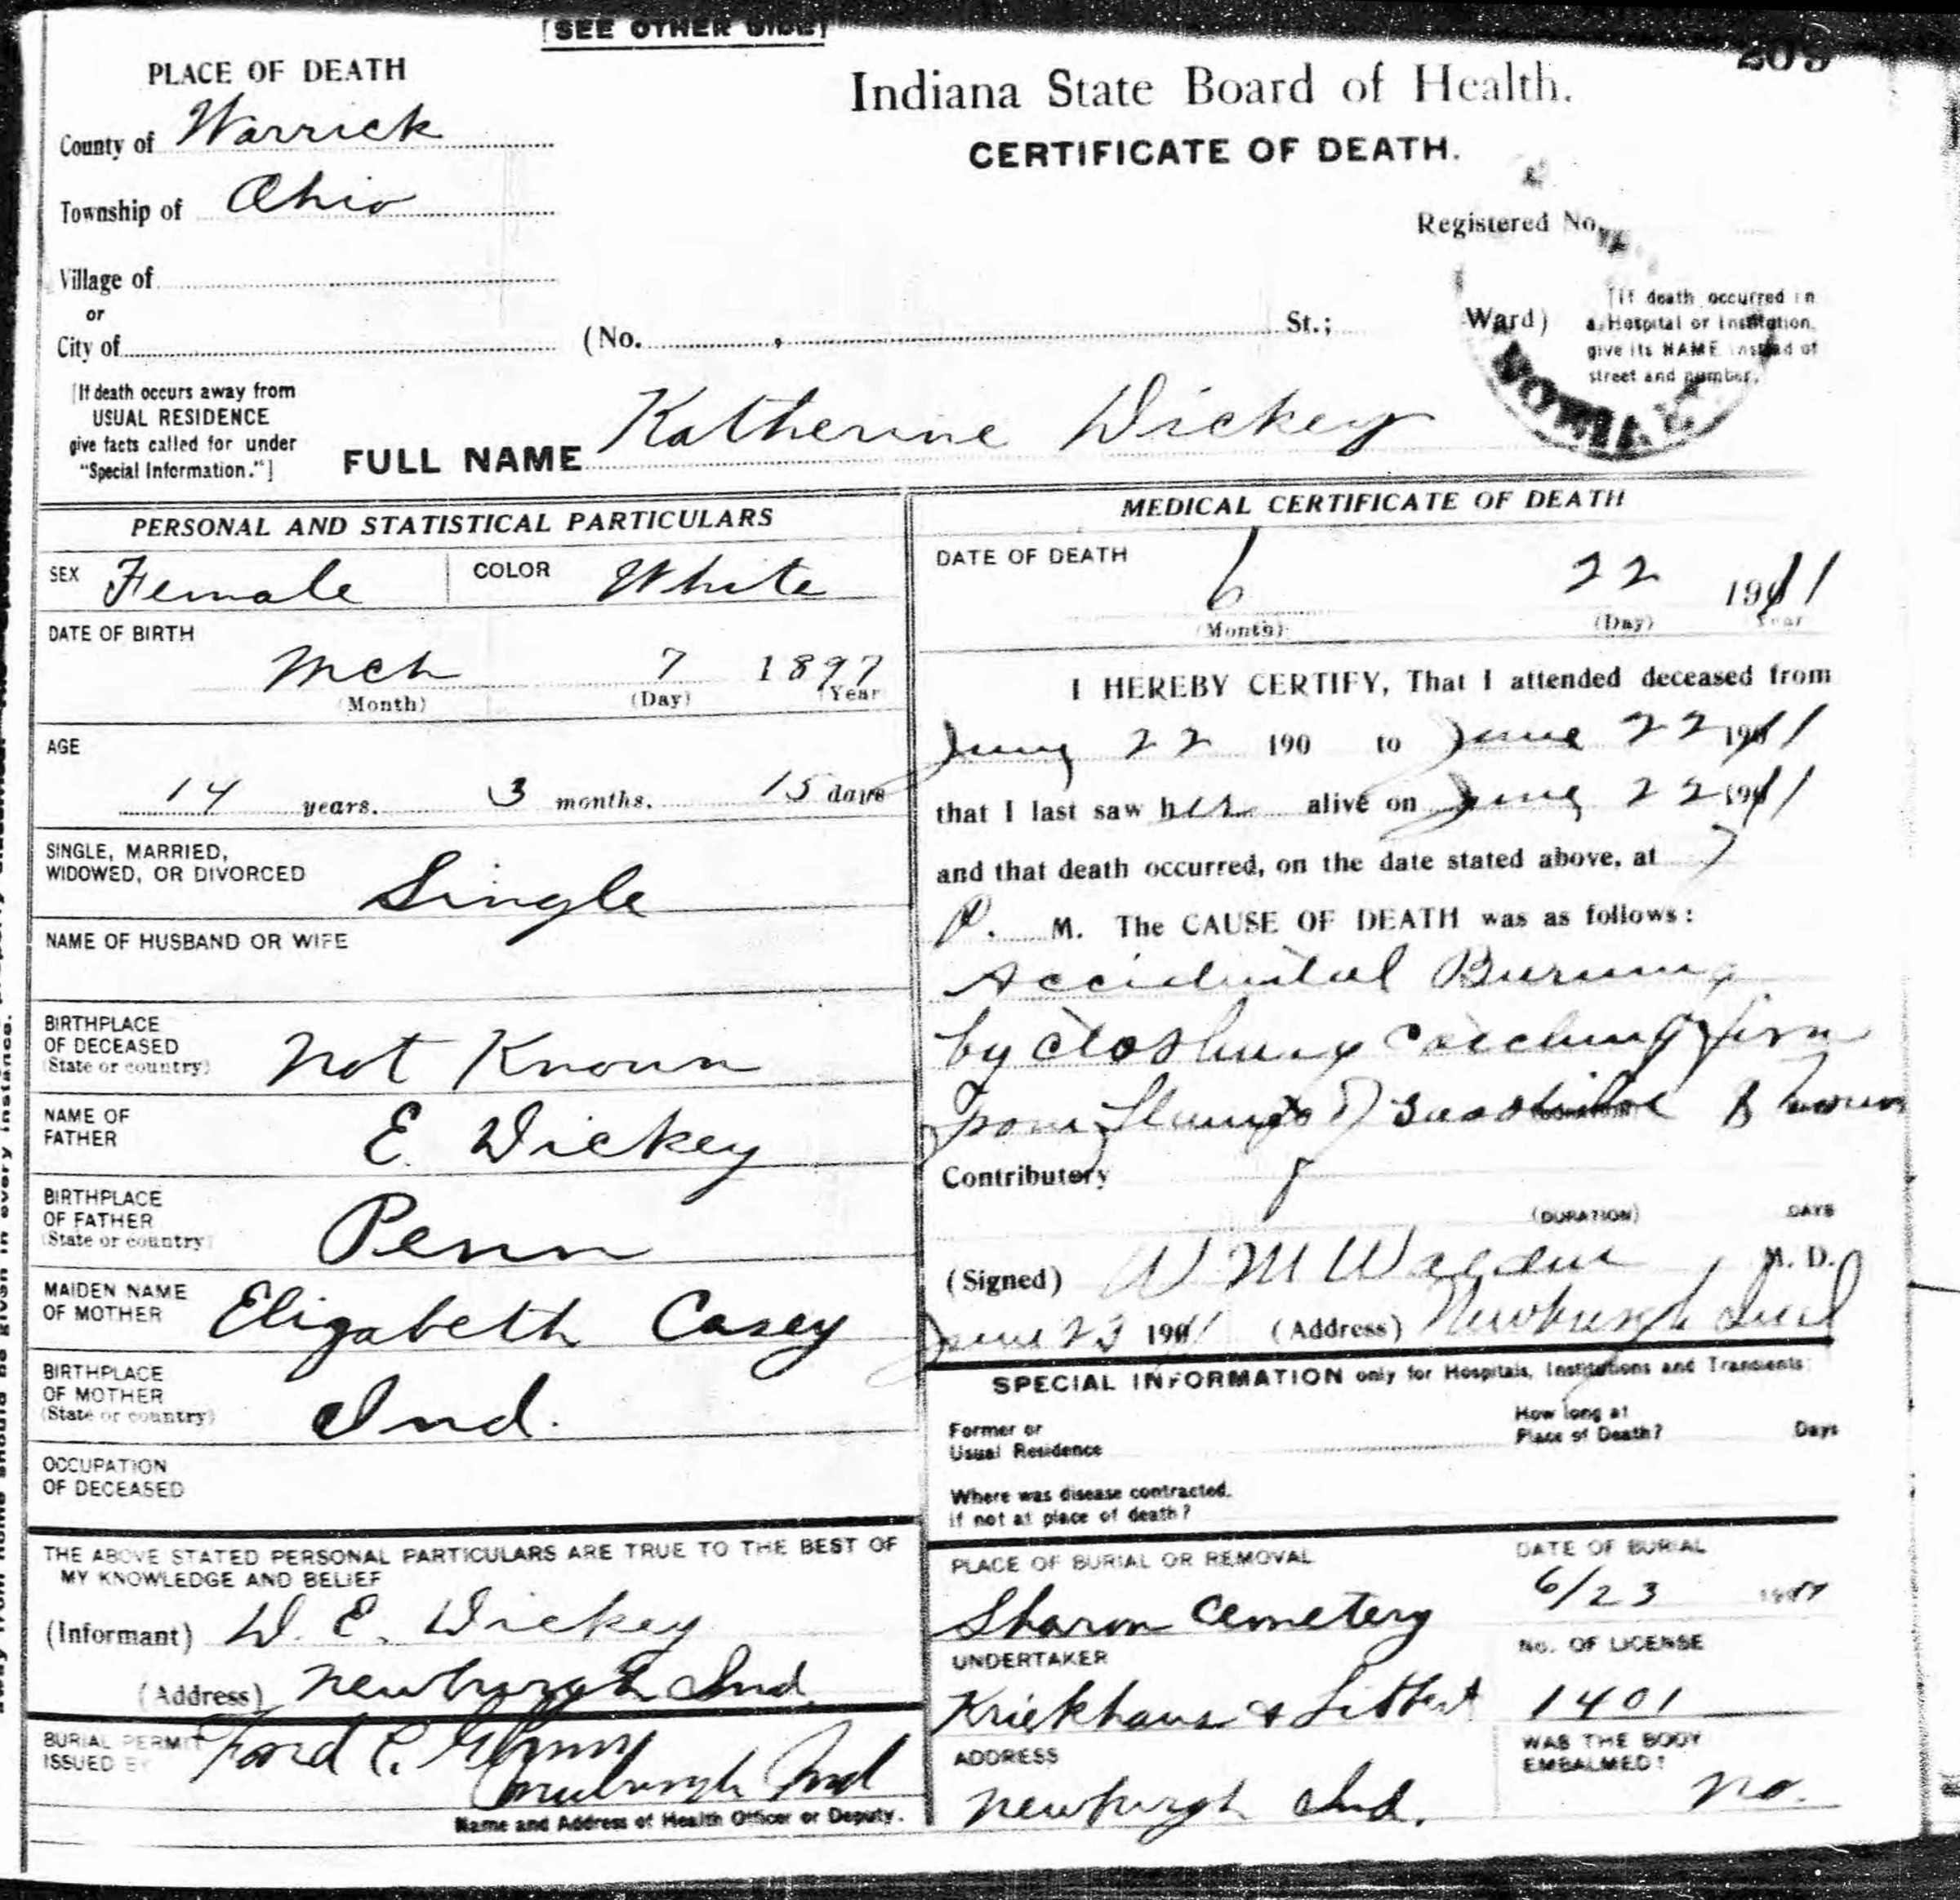 [SEE OTHER SIDE]
209
PLACE OF DEATH
Indiana State Board of Health.
CERTIFICATE OF DEATH.
County of Warrick
Township of Ohio
Registered No.
Village of
or
City of
(No. , St.; Ward)
[If death occurred in
a Hospital or Institution,
give its NAME instead of
street and number.
[If death occurs away from
USUAL RESIDENCE
give facts called for under
"Special Information."]
FULL NAME Katherine Dickey
PERSONAL AND STATISTICAL PARTICULARS
SEX Female COLOR White
DATE OF BIRTH
Mch 7 1897
(Month) (Day) (Year
AGE
14 years. 3 months. 15 days
SINGLE, MARRIED,
WIDOWED, OR DIVORCED Single
NAME OF HUSBAND OR WIFE
BIRTHPLACE
OF DECEASED
(State or country) Not Known
NAME OF
FATHER E. Dickey
BIRTHPLACE
OF FATHER
(State or country) Penn
MAIDEN NAME
OF MOTHER Elizabeth Casey
BIRTHPLACE
OF MOTHER
(State or country) Ind.
OCCUPATION
OF DECEASED
THE ABOVE STATED PERSONAL PARTICULARS ARE TRUE TO THE BEST OF
MY KNOWLEDGE AND BELIEF
(Informant) W. E. Dickey
(Address) Newburgh Ind.
BURIAL PERMIT
ISSUED BY Ford C.
Newburgh Ind
Name and Address of Health Officer or Deputy.
MEDICAL CERTIFICATE OF DEATH
DATE OF DEATH
6 22 1911
(Month) (Day) Year
I HEREBY CERTIFY, That I attended deceased from
June 22 190 to June 22 1911
that I last saw her alive on June 22 1911
and that death occurred, on the date stated above, at 7
P. M. The CAUSE OF DEATH was as follows:
Accidental Burning
by clothing catching fire
from
Contributory
(DURATION) DAYS
(Signed) W M M. D.
June 23 1911 (Address) Newburgh Ind
SPECIAL INFORMATION only for Hospitals, Institutions and Transients
Former or
Usual Residence
How long at
Place of Death? Days
Where was disease contracted,
if not at place of death?
PLACE OF BURIAL OR REMOVAL
Sharon Cemetery
DATE OF BURIAL
6/23
UNDERTAKER
Kriekhaus &
No. OF LICENSE
1401
ADDRESS
Newburgh Ind.
WAS THE BODY
EMBALMED?
No.